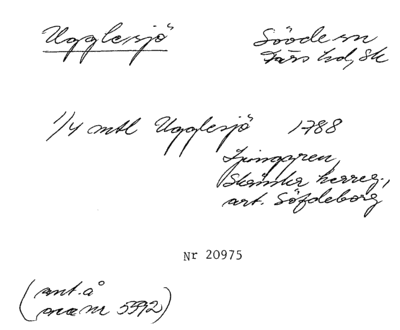 Ugglesjö Söödesn
Färs hd, Sk
1/4 mtl Ugglesjö 1788
Ljunggren,
Skånska herreg.,
art. Söfdeborg
Nr 20975
(ant. å
5992)